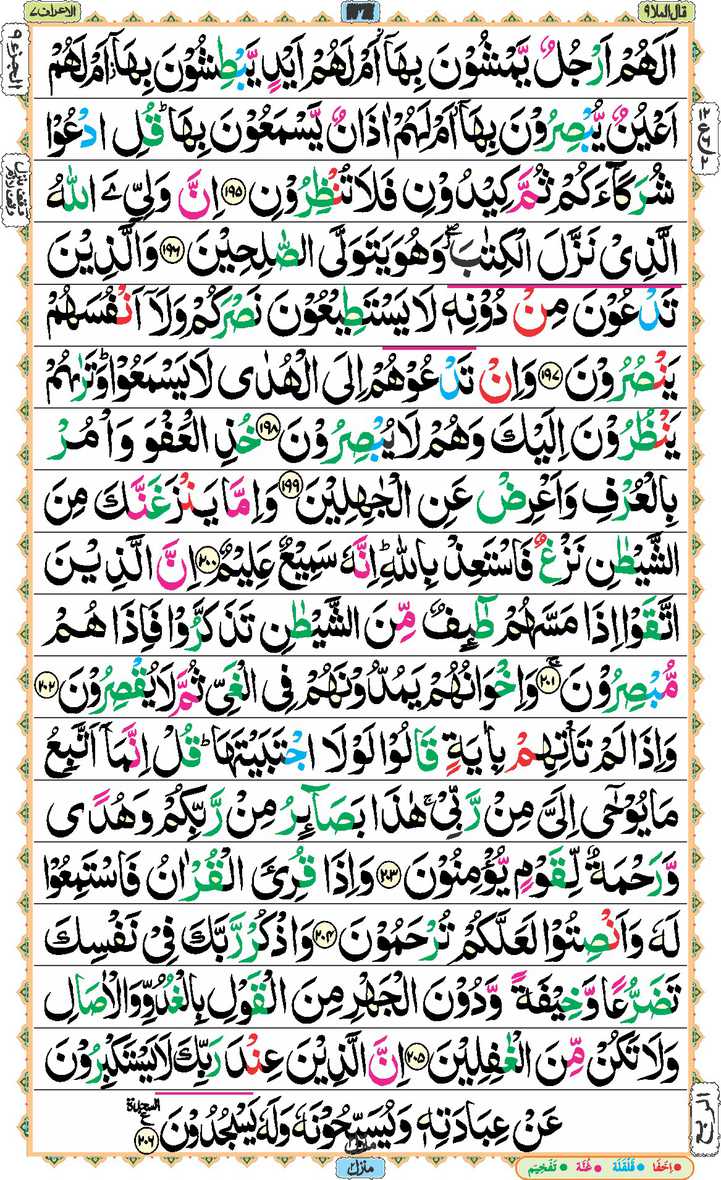 قال الملا ٩
الاعراف ٧
اَلَهُمْ اَرْجُلٌ يَّمْشُوْنَ بِهَاۤ اَمْ لَهُمْ اَيْدٍ يَّبْطِشُوْنَ بِهَاۤ اَمْ لَهُمْ
اَعْيُنٌ يُّبْصِرُوْنَ بِهَاۤ اَمْ لَهُمْ اٰذَانٌ يَّسْمَعُوْنَ بِهَا ؕ قُلِ ادْعُوْا
شُرَكَآءَكُمْ ثُمَّ كِيْدُوْنِ فَلَا تُنْظِرُوْنِ ﴿۱۹۵﴾ اِنَّ وَلِیِّ ےَ اللّٰهُ
الَّذِیْ نَزَّلَ الْكِتٰبَ ۖ وَهُوَ يَتَوَلَّى الصّٰلِحِيْنَ ﴿۱۹۶﴾ وَالَّذِيْنَ
تَدْعُوْنَ مِنْ دُوْنِهٖ لَا يَسْتَطِيْعُوْنَ نَصْرَكُمْ وَلَاۤ اَنْفُسَهُمْ
يَنْصُرُوْنَ ﴿۱۹۷﴾ وَاِنْ تَدْعُوْهُمْ اِلَى الْهُدٰى لَا يَسْمَعُوْا ؕ وَتَرٰىهُمْ
يَنْظُرُوْنَ اِلَيْكَ وَهُمْ لَا يُبْصِرُوْنَ ﴿۱۹۸﴾ خُذِ الْعَفْوَ وَاْمُرْ
بِالْعُرْفِ وَاَعْرِضْ عَنِ الْجٰهِلِيْنَ ﴿۱۹۹﴾ وَاِمَّا يَنْزَغَنَّكَ مِنَ
الشَّيْطٰنِ نَزْغٌ فَاسْتَعِذْ بِاللّٰهِ ؕ اِنَّهٗ سَمِيْعٌ عَلِيْمٌ ﴿۲۰۰﴾ اِنَّ الَّذِيْنَ
اتَّقَوْا اِذَا مَسَّهُمْ طٰٓئِفٌ مِّنَ الشَّيْطٰنِ تَذَكَّرُوْا فَاِذَا هُمْ
مُّبْصِرُوْنَ ۚ ﴿۲۰۱﴾ وَاِخْوَانُهُمْ يَمُدُّوْنَهُمْ فِى الْغَىِّ ثُمَّ لَا يُقْصِرُوْنَ ﴿۲۰۲﴾
وَاِذَا لَمْ تَاْتِهِمْ بِاٰيَةٍ قَالُوْا لَوْلَا اجْتَبَيْتَهَا ؕ قُلْ اِنَّمَاۤ اَتَّبِعُ
مَا يُوْحٰۤى اِلَىَّ مِنْ رَّبِّىْ ۚ هٰذَا بَصَآئِرُ مِنْ رَّبِّكُمْ وَهُدًى
وَّرَحْمَةٌ لِّقَوْمٍ يُّؤْمِنُوْنَ ﴿۲۰۳﴾ وَاِذَا قُرِئَ الْقُرْاٰنُ فَاسْتَمِعُوْا
لَهٗ وَاَنْصِتُوْا لَعَلَّكُمْ تُرْحَمُوْنَ ﴿۲۰۴﴾ وَاذْكُرْ رَّبَّكَ فِىْ نَفْسِكَ
تَضَرُّعًا وَّخِيْفَةً وَّدُوْنَ الْجَهْرِ مِنَ الْقَوْلِ بِالْغُدُوِّ وَالْاٰصَالِ
وَلَا تَكُنْ مِّنَ الْغٰفِلِيْنَ ﴿۲۰۵﴾ اِنَّ الَّذِيْنَ عِنْدَ رَبِّكَ لَا يَسْتَكْبِرُوْنَ
عَنْ عِبَادَتِهٖ وَيُسَبِّحُوْنَهٗ وَلَهٗ يَسْجُدُوْنَ ﴿۲۰۶﴾ السجدة
منزل
اِخْفَا • قَلْقَلَة • غُنَّة • تَفْخِيْم